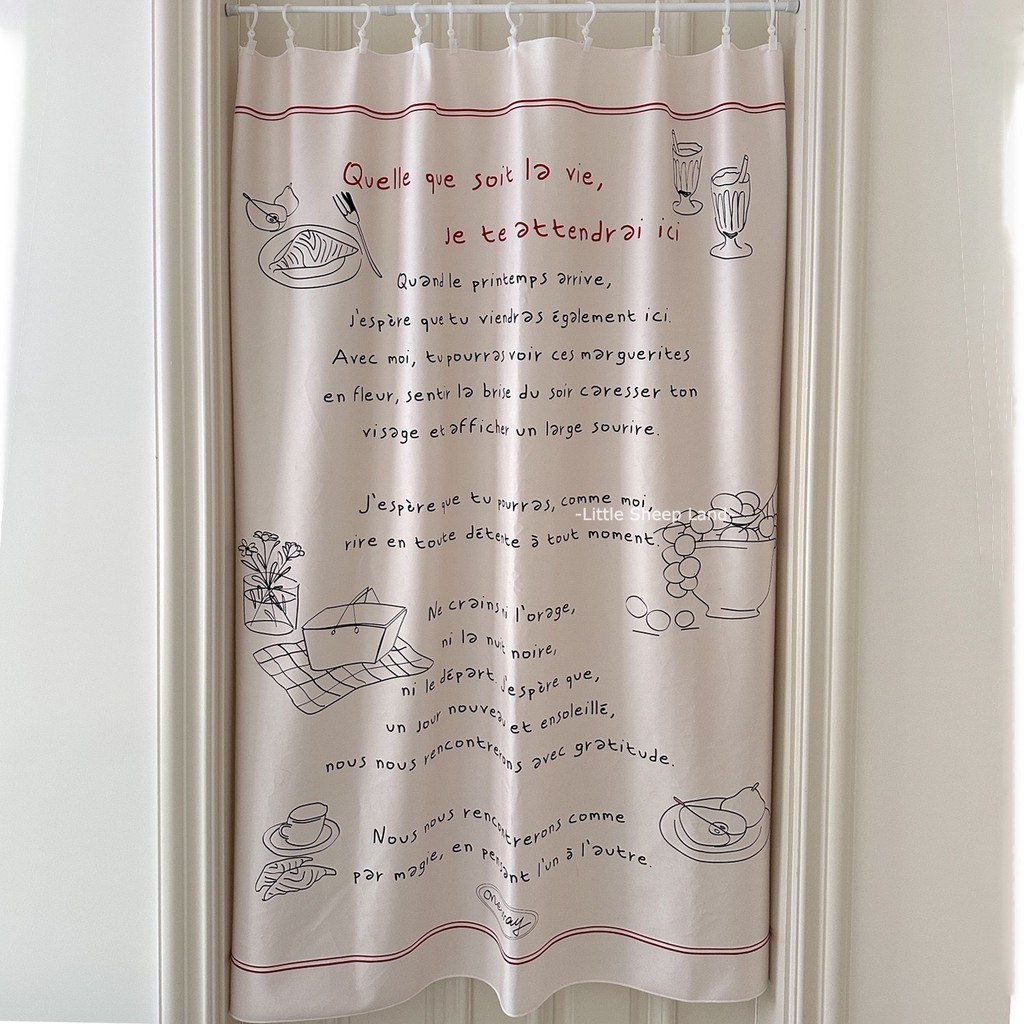 Quelle que soit la vie,
Je te attendrai ici
Quand le printemps arrive,
J'espère que tu viendras également ici.
Avec moi, tu pourras voir ces marguerites
en fleur, sentir la brise du soir caresser ton
visage et afficher un large sourire.
J'espère que tu pourras, comme moi,
-Little Sheep Land-
rire en toute détente à tout moment.
Ne crains ni l'orage,
ni la nuit noire,
ni le départ. J'espère que,
un jour nouveau et ensoleillé,
nous nous rencontrerons avec gratitude.
Nous nous rencontrerons comme
par magie, en pensant l'un à l'autre.
one way